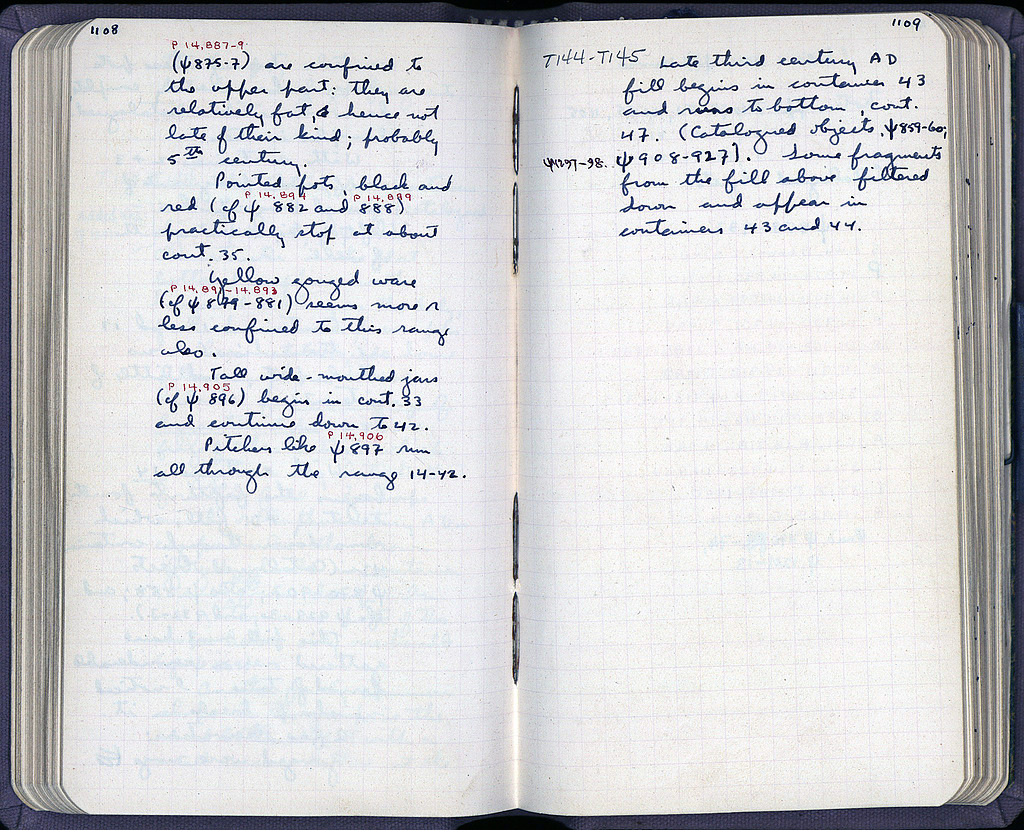 1108
P 14,887-9
(ψ875-7) are confined to
the upper part: they are
relatively fat, & hence not
late of their kind; probably
5th century.
Pointed pots, black and
P 14,894 P 14,899
red (cf ψ 882 and 888)
practically stop at about
cont. 35.
Yellow gouged ware
P 14,891-14,893
(cf ψ 879-881) seems more or
less confined to this range
also.
Tall wide-mouthed jars
P 14,905
(cf ψ 896) begin in cont. 33
and continue down to 42.
P 14,906
Pitchers like ψ897 run
all through the range 14-42.
1109
T144-T145 Late third century AD
fill begins in container 43
and runs to bottom, cont.
47. (Catalogued objects, ψ859-60;
ψ1297-98. ψ908-927). Some fragments
from the fill above filtered
down and appear in
containers 43 and 44.